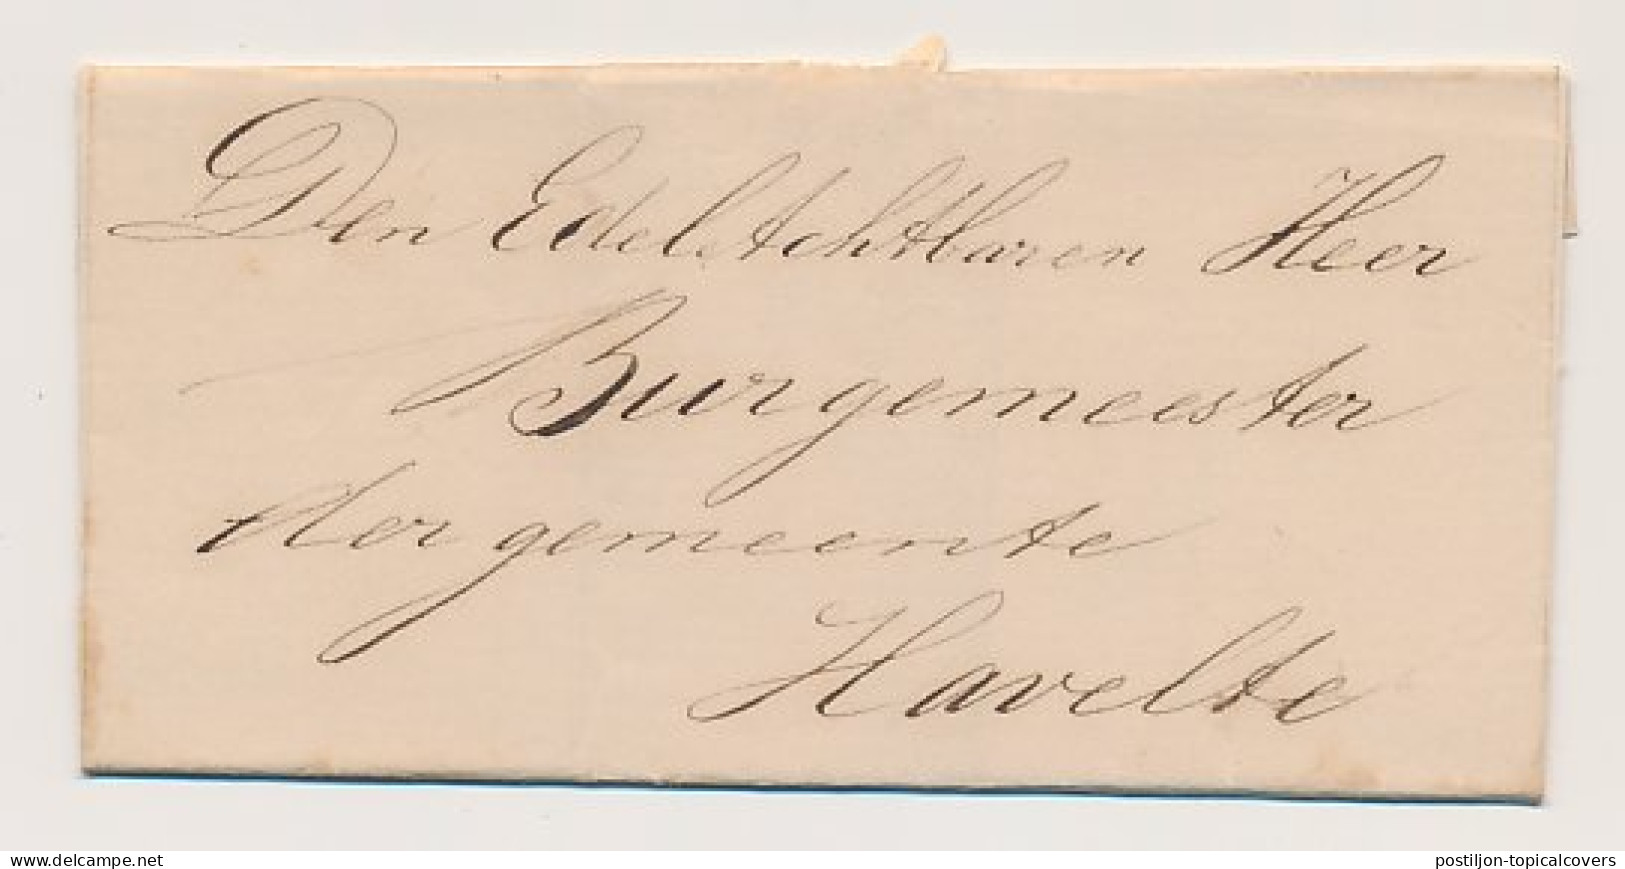 Den EdelAchtbaren Heer
Burgemeester
der gemeente
Havelte
www.delcampe.net
postiljon-topicalcovers